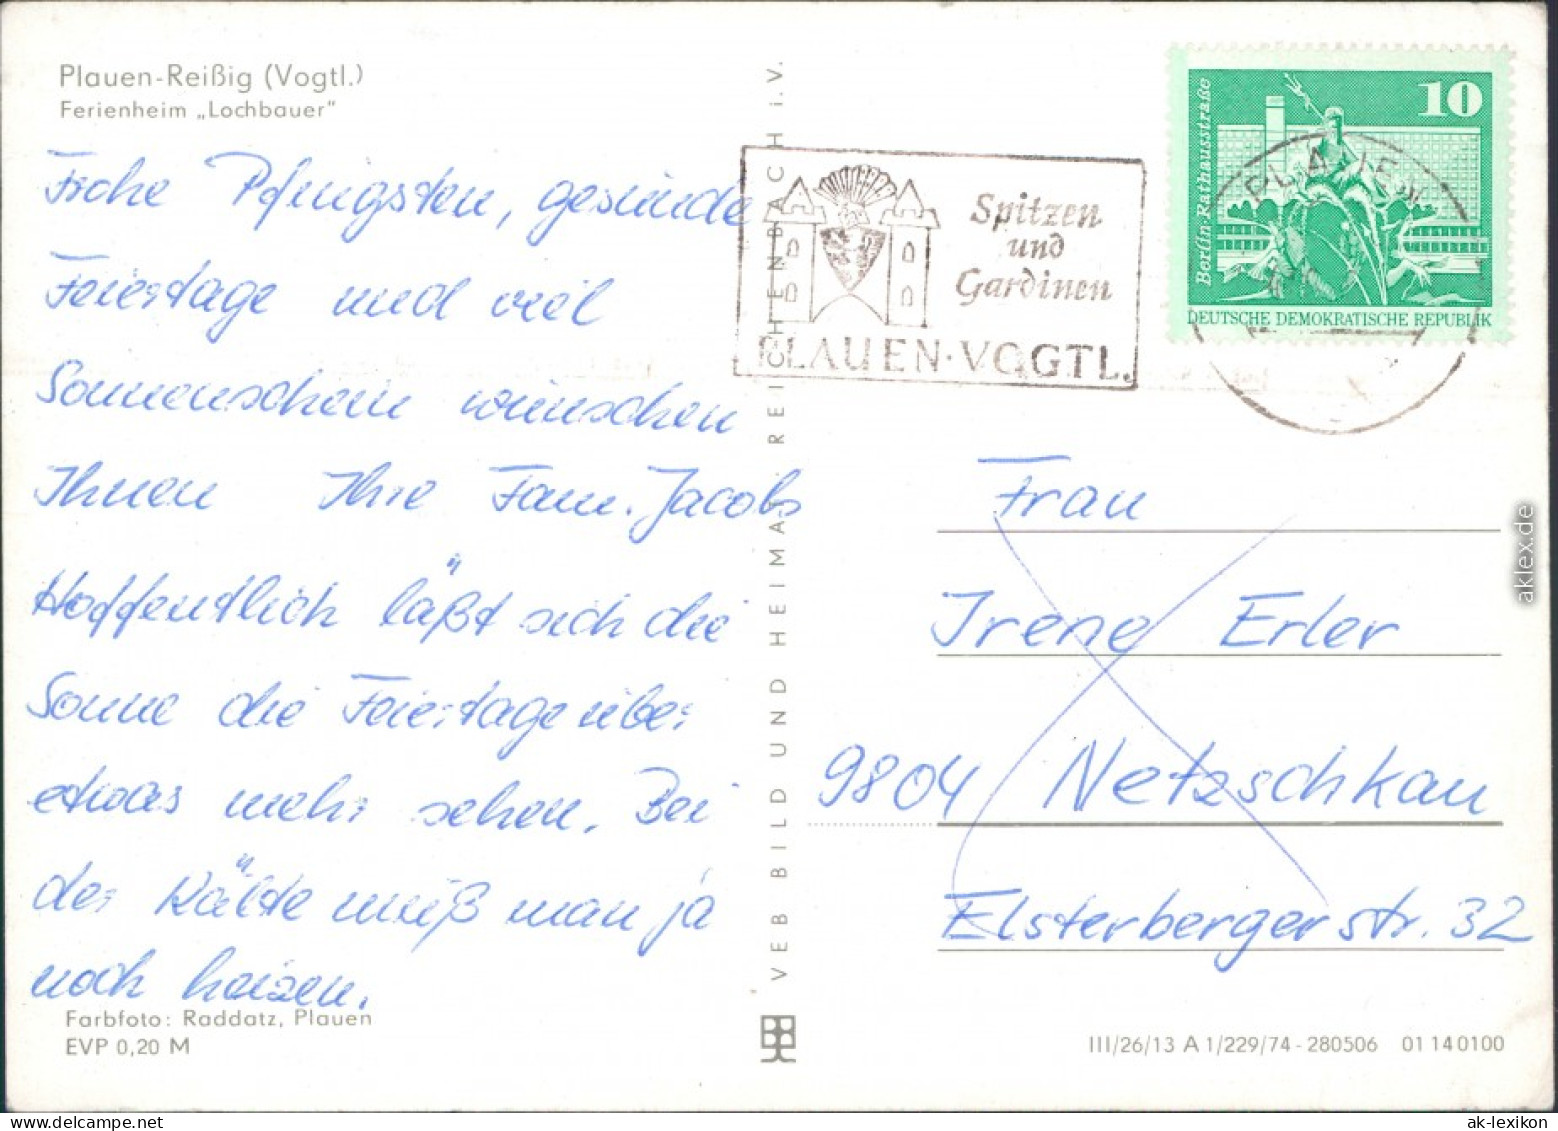 Plauen-Reißig (Vogtl.)
Ferienheim „Lochbauer"
Frohe Pfingsten, gesunde
Feiertage und viel
Sonnenschein wünschen
Ihnen Ihre Fam. Jacobs
Hoffentlich läßt sich die
Sonne die Feiertage über
etwas mehr sehen. Bei
der Kälte muß man ja
noch heizen.
Farbfoto: Raddatz, Plauen
EVP 0,20 M
VEB BILD UND HEIMAT REICHENBACH i.V.
Spitzen
und
Gardinen
PLAUEN·VOGTL.
PLAUEN
10
Berlin-Rathausstraße
DEUTSCHE DEMOKRATISCHE REPUBLIK
Frau
Irene Erler
9804 Netzschkau
Elsterbergerstr. 32
III/26/13 A 1/229/74-280506 01 14 0100
aklex.de
ak-lexikon